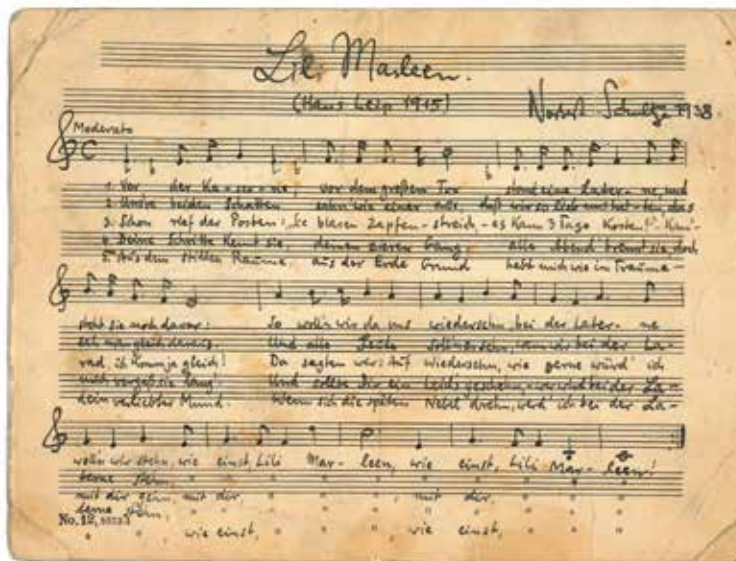 Lili Marleen.
(Hans Leip 1915)
Norbert Schultze 1938
Moderato
1. Vor der Ka-ser-ne, vor dem großen Tor stand eine Later-ne, und
2. Unsre beiden Schatten sahn wie einer aus, daß wir so lieb uns hat-ten, das
3. Schon rief der Posten: Sie blasen Zapfen-streich, - es kann 3 Tage kosten! Kam'-
4. Deine Schritte kennt sie, deinen zieren Gang alle Abend brennt sie, doch
5. Aus dem stillen Raume, aus der Erde Grund hebt mich wie im Traume -
steht sie noch davor: So woll'n wir da uns wiedersehn, bei der Later-ne
sah man gleich daraus. Und alle Leute solln es sehn, wenn wir bei der La-
rad, ich komm ja gleich! Da sagten wir: Auf Wiedersehn, wie gerne würd' ich
mich vergaß sie lang! Und sollte mir ein Leids geschehn, - wer wird bei der La-
dein verliebter Mund. Wenn sich die späten Nebel drehn, werd' ich bei der La-
woll'n wir stehn, wie einst, Lili Mar-leen, wie einst, Lili Mar-leen!
terne stehn,
mit dir gehn, mit dir, mit dir,
terne stehn,
No. 12,
wie einst, wie einst,